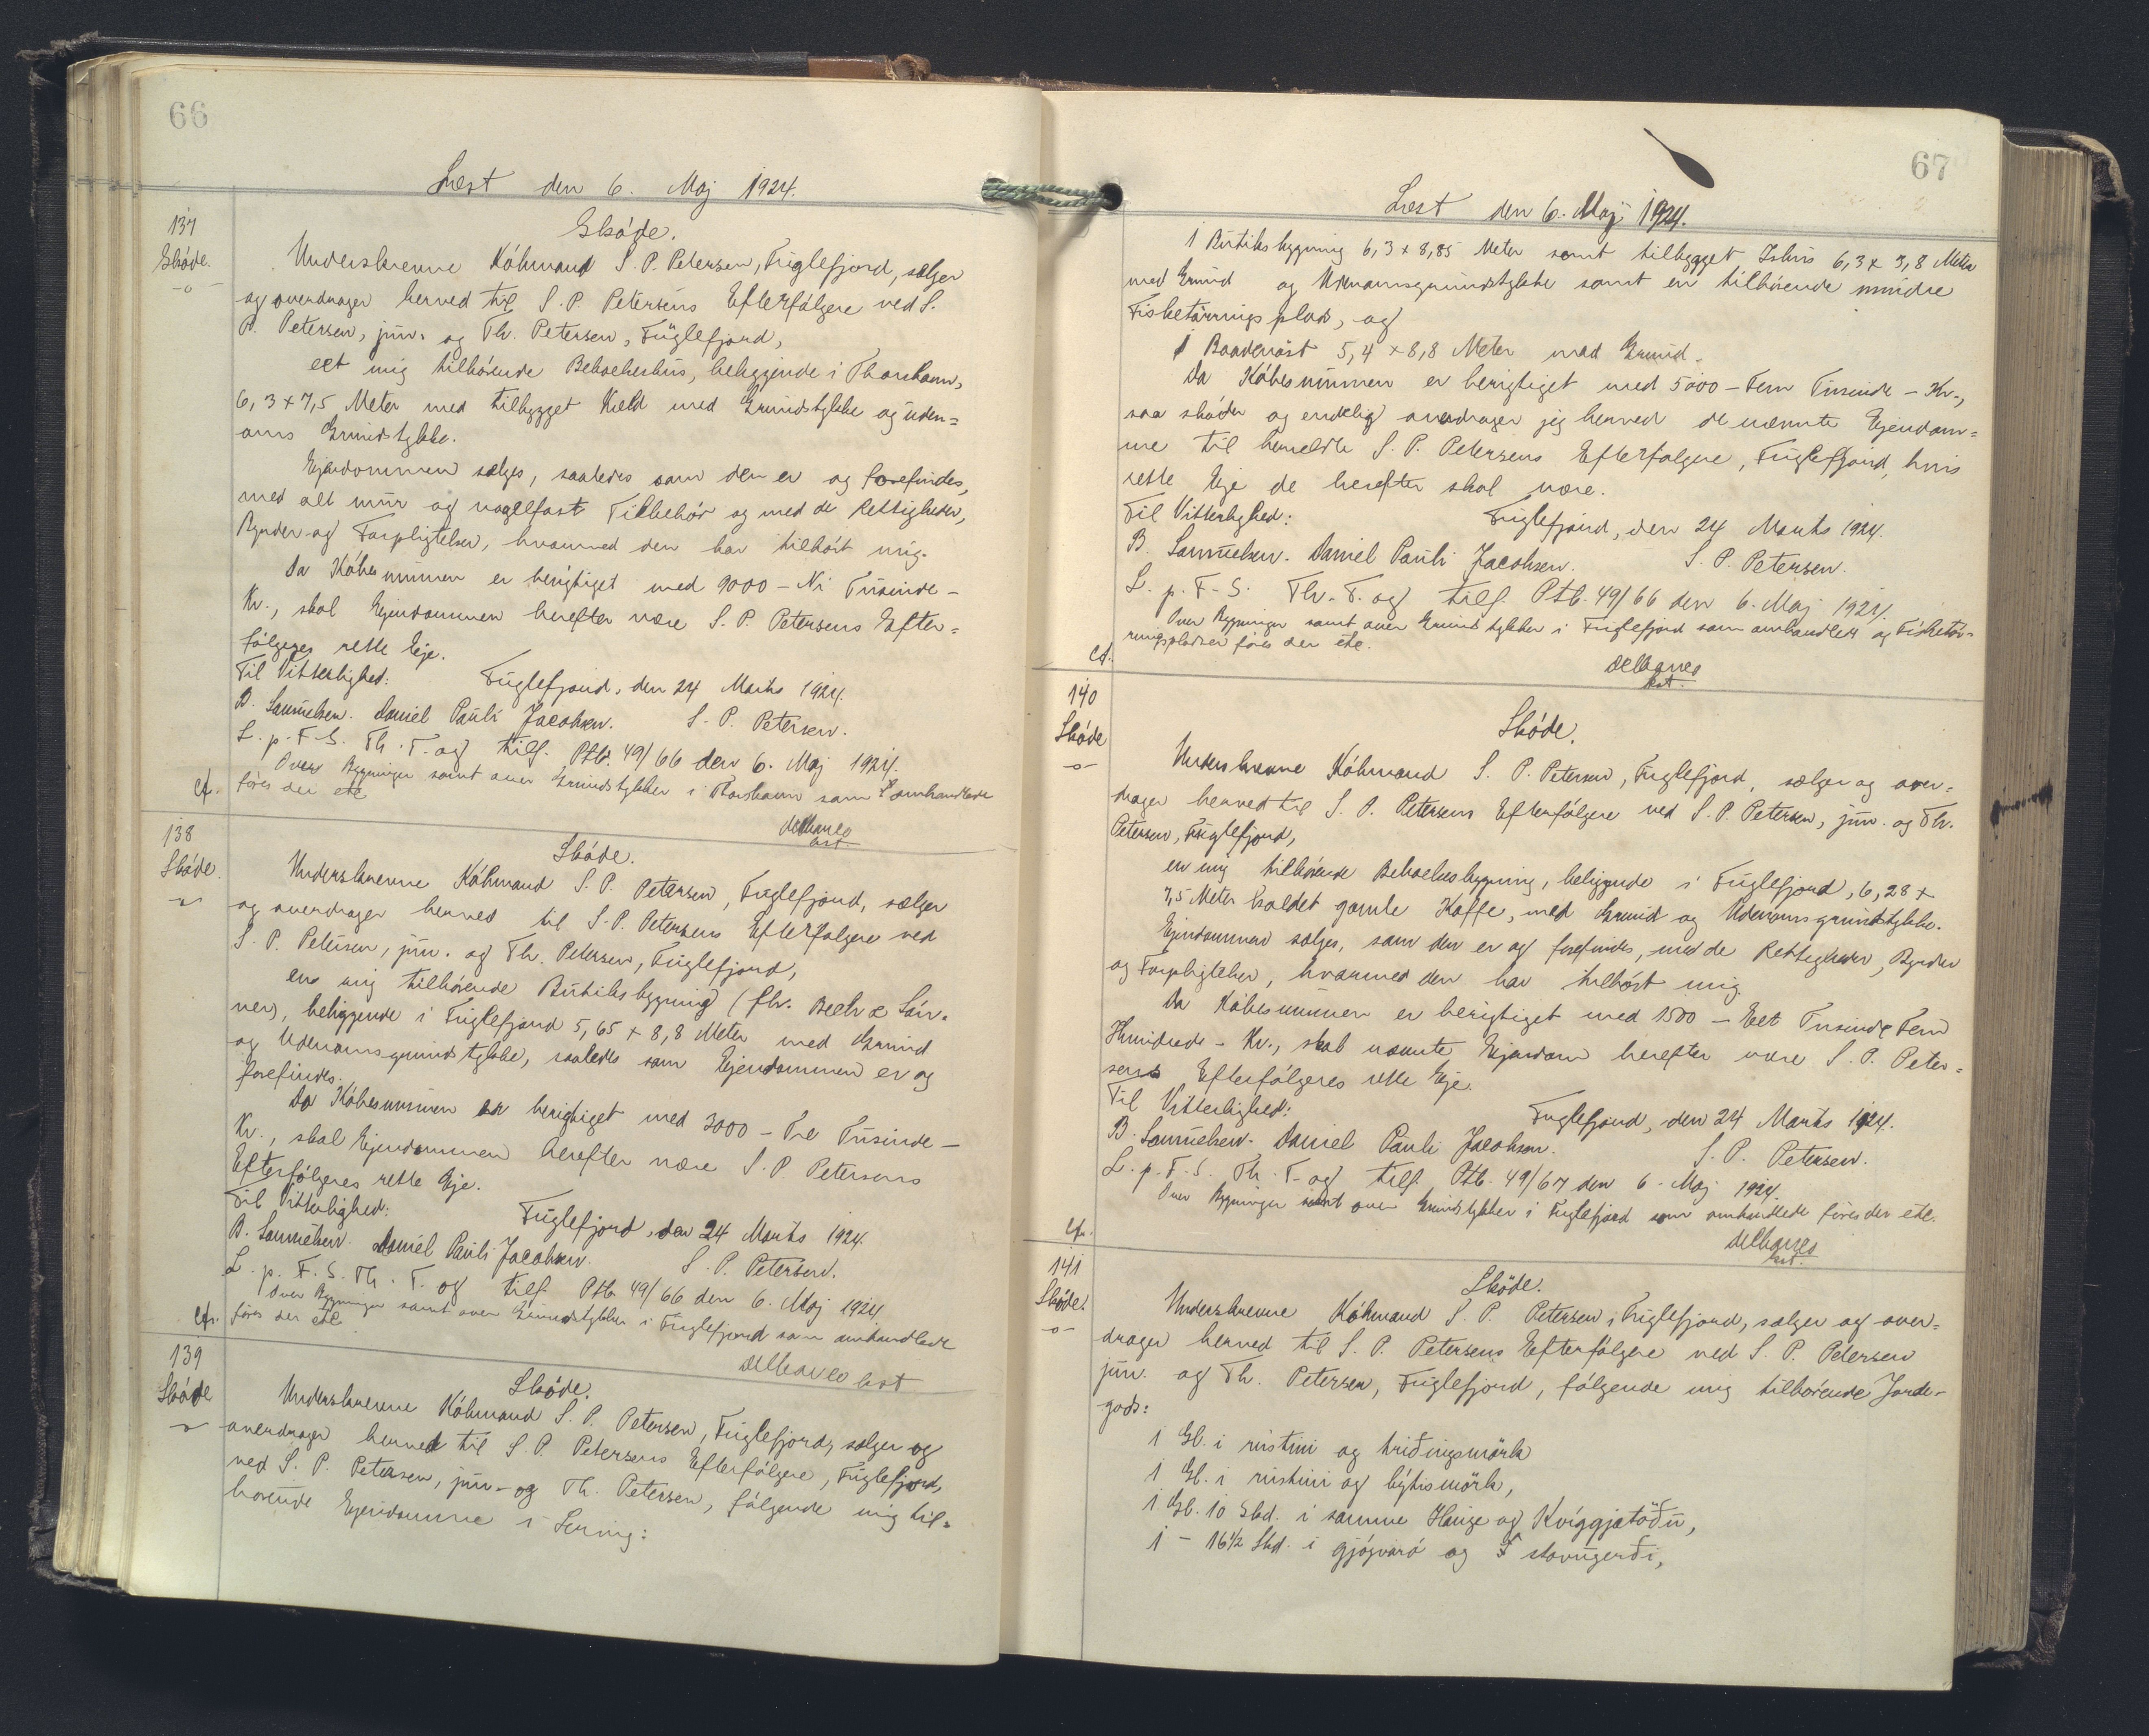 66
Læst den 6. Maj 1924.
137
Skøde.
Skøde.
Underskrevne Købmand S. P. Petersen, Fuglefjord, sælger
og overdrager herved til S. P. Petersens Efterfølgere ved S.
P. Petersen, jun. og Th. Petersen, Fuglefjord,
eet mig tilhørende Beboelseshus, beliggende i Thorshavn,
6,3 x 7,5 Meter med tilbygget Kæld med Grundstykke og uden=
oms Grundstykke.
Ejendommen sælges, saaledes som den er og forefindes,
med alt mur og nagelfast Tilbehør og med de Rettigheder,
Byrder og Forpligtelser, hvormed den har tilhørt mig.
Da Købesummen er berigtiget med 9000 - Ni Tusinde -
Kr., skal Ejendommen herefter være S. P. Petersens Efter=
følgeres rette Eje.
Til Vitterlighed: Fuglefjord, den 24 Marts 1924.
B. Samuelsen. Daniel Pauli Jacobsen. S. P. Petersen.
L. p. F. S. Th. T. og tilf. Ptb. 49/66 den 6. Maj 1924.
Over Bygninger samt over Grundstykker i Thorshavn som omhandlede
cf. føres der ete
138
Skøde.
Skøde.
Underskrevne Købmand S. P. Petersen, Fuglefjord, sælger
og overdrager herved til S. P. Petersens Efterfølgere ved
S. P. Petersen, jun. og Th. Petersen, Fuglefjord,
en mig tilhørende Butiksbygning (fhv. Bech & Søn=
ner), beliggende i Fuglefjord 5,65 x 8,8 Meter med Grund
og Udenomsgrundstykke, saaledes som Ejendommen er og
forefindes.
Da Købesummen er berigtiget med 3000 - Tre Tusinde -
Kr., skal Ejendommen herefter være S. P. Petersens
Efterfølgeres rette Eje.
Til Vitterlighed: Fuglefjord, den 24 Marts 1924.
B. Samuelsen. Daniel Pauli Jacobsen. S. P. Petersen.
L. p. F. S. Th. T. og tilf. Ptb. 49/66 den 6. Maj 1924.
Over Bygninger samt over Grundstykker i Fuglefjord som omhandlede
cfr. føres der ete
139
Skøde
Skøde.
Underskrevne Købmand S. P. Petersen, Fuglefjord, sælger og
overdrager herved til S. P. Petersens Efterfølgere, Fuglefjord,
ved S. P. Petersen, jun. og Th. Petersen, følgende mig til=
hørende Ejendomme i Lervig:
67
Læst den 6. Maj 1924.
1 Butiksbygning 6,3 x 8,85 Meter samt tilbygget Ishus 6,3 x 3,8 Meter
med Grund og Udenomsgrundstykke samt en tilhørende mindre
Fisketørringsplads, og
1 Baadenøst 5,4 x 8,8 Meter med Grund.
Da Købesummen er berigtiget med 5000 - Fem Tusinde - Kr.,
saa skøder og endelig overdrager jeg herved de nævnte Ejendom=
me til bemeldte S. P. Petersens Efterfølgere, Fuglefjord, hvis
rette Eje de herefter skal være.
Til Vitterlighed: Fuglefjord, den 24 Marts 1924.
B. Samuelsen. Daniel Pauli Jacobsen. S. P. Petersen.
L. p. F. S. Th. T. og tilf. Ptb. 49/66 den 6. Maj 1924.
Over Bygninger samt over Grundstykker i Fuglefjord som omhandlede og Fisketør=
cf. ringspladser føres der ete.
140
Skøde
Skøde.
Underskrevne Købmand S. P. Petersen, Fuglefjord, sælger og over=
drager herved til S. P. Petersens Efterfølgere ved S. P. Petersen, jun. og Th.
Petersen, Fuglefjord,
en mig tilhørende Beboelsesbygning, beliggende i Fuglefjord, 6,28 x
7,5 Meter kaldet gamle Kaffe, med Grund og Udenomsgrundstykke.
Ejendommen sælges, som den er og forefindes, med de Rettigheder, Byrder
og Forpligtelser, hvormed den har tilhørt mig.
Da Købesummen er berigtiget med 1500 - Eet Tusinde Fem
Hundrede - Kr., skal nævnte Ejendom herefter være S. P. Peter=
sens Efterfølgeres rette Eje.
Til Vitterlighed: Fuglefjord, den 24 Marts 1924.
B. Samuelsen. Daniel Pauli Jacobsen. S. P. Petersen.
L. p. F. S. Th. T. og tilf. Ptb. 49/67 den 6. Maj 1924.
Over Bygninger samt over Grundstykker i Fuglefjord som omhandlede føres der ete.
cfr.
141
Skøde.
Skøde.
Underskrevne Købmand S. P. Petersen, Fuglefjord, sælger og over=
drager herved til S. P. Petersens Efterfølgere ved S. P. Petersen
jun. og Th. Petersen, Fuglefjord, følgende mig tilhørende Jorde=
gods:
1 Gl. i rustini og triðingsmørk
1 Gl. i rustini og býtismørk,
1 Gl. 10 Skd. i samme Hauge og Kvíggjatøðu,
1 - 16½ Skd. i gjógvará og í stovugerði,